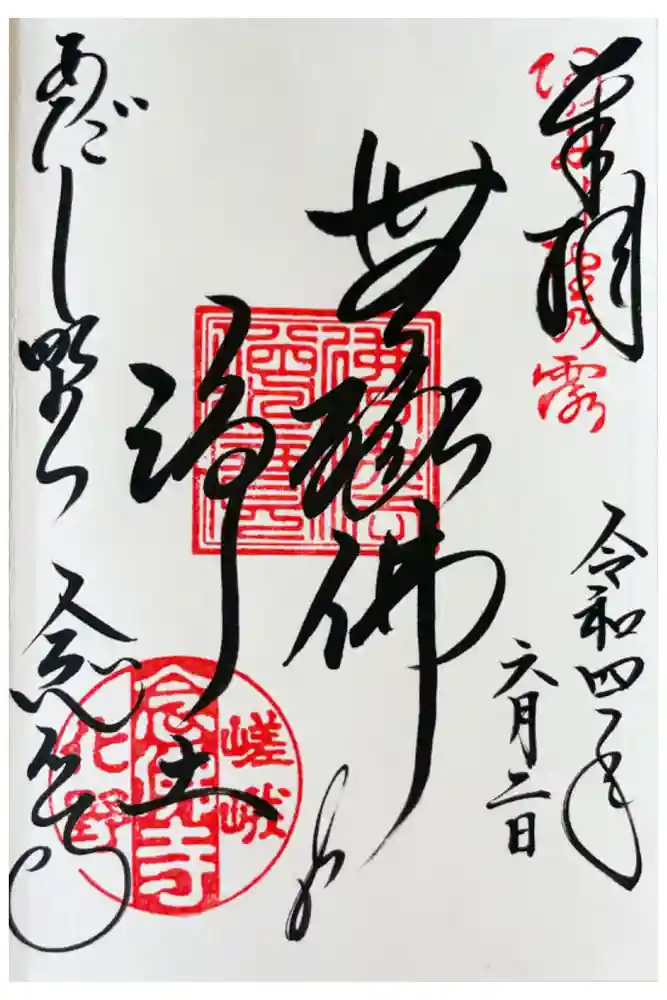 奉拝
令和四年
六月二日
無縁佛の
浄土
あだし野
念仏寺
嵯峨
念佛寺
化野